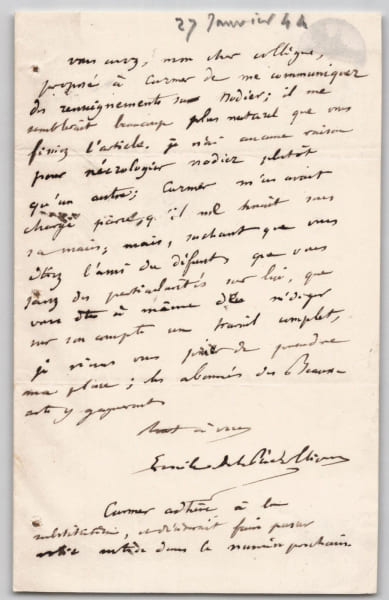 27 Janvier 44
vous avez, mon cher collègue,
proposé à Curmer de me communiquer
des renseignements sur Nodier; il me
semblerait beaucoup plus naturel que vous
fissiez l'article. je n'ai aucune raison
pour nécrologier nodier plutôt
qu'un autre; Curmer m'en avait
chargé parce qu'il me tenait sous
sa main; mais, sachant que vous
étiez l'ami du défunt que vous
savez des particularités sur lui, que
vous êtes à même de rédiger
sur son compte un travail complet,
je viens vous prier de prendre
ma place; les abonnés des Beaux-
arts y gagneront
tout à vous
Emile de la Bédollière
Curmer adhère à la
substitution, et désirerait faire passer
votre notice dans le numéro prochain